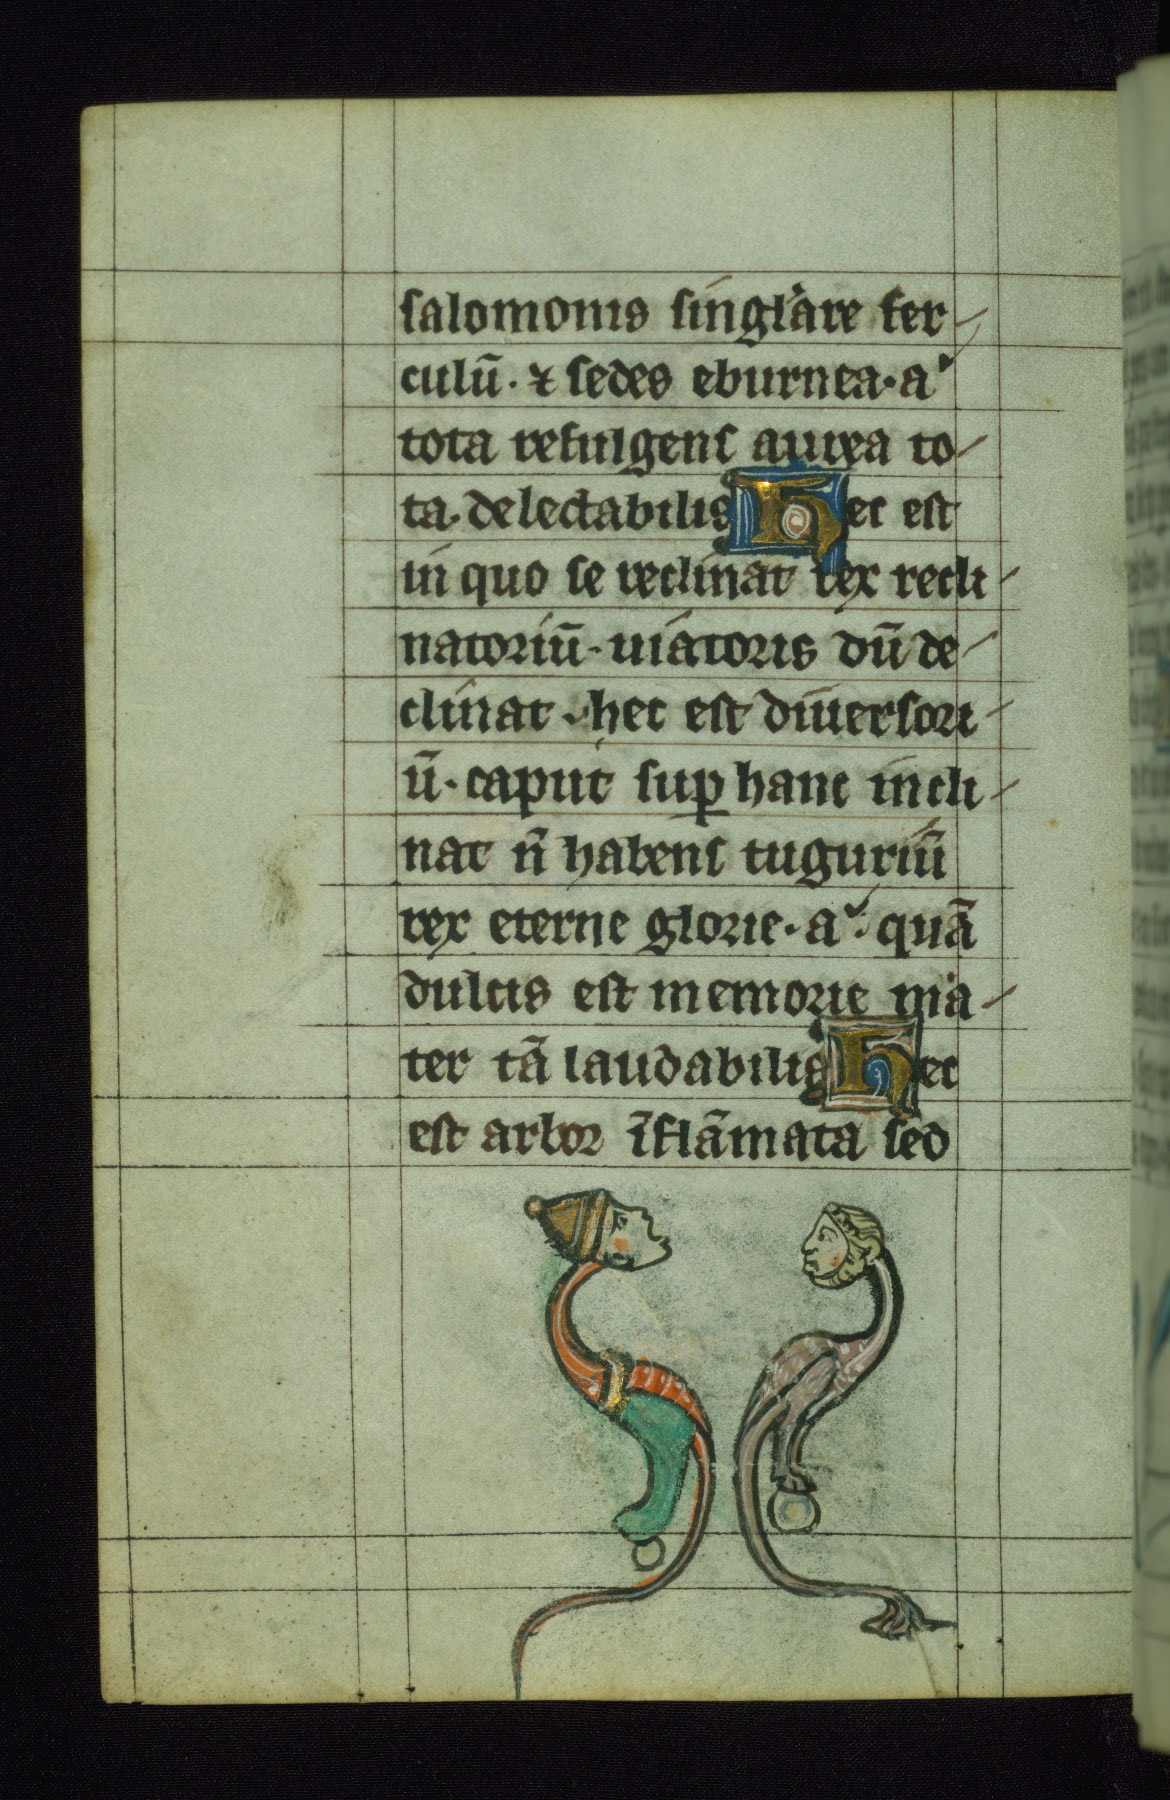 salomonis singl'are fer
culū. ⁊ sedes eburnea. a'
tota refulgens aurea to
ta delectabilis Hec est
in quo se reclinat rex recli
natoriū. uiatoris dū de
clinat. hec est diuersori
ū. caput sup hanc incli
nat n̄ habens tuguriū
rex eterne glorie. a'. quā
dulcis est memorie ma
ter tā laudabilis Hec
est arbor īflāmata sed